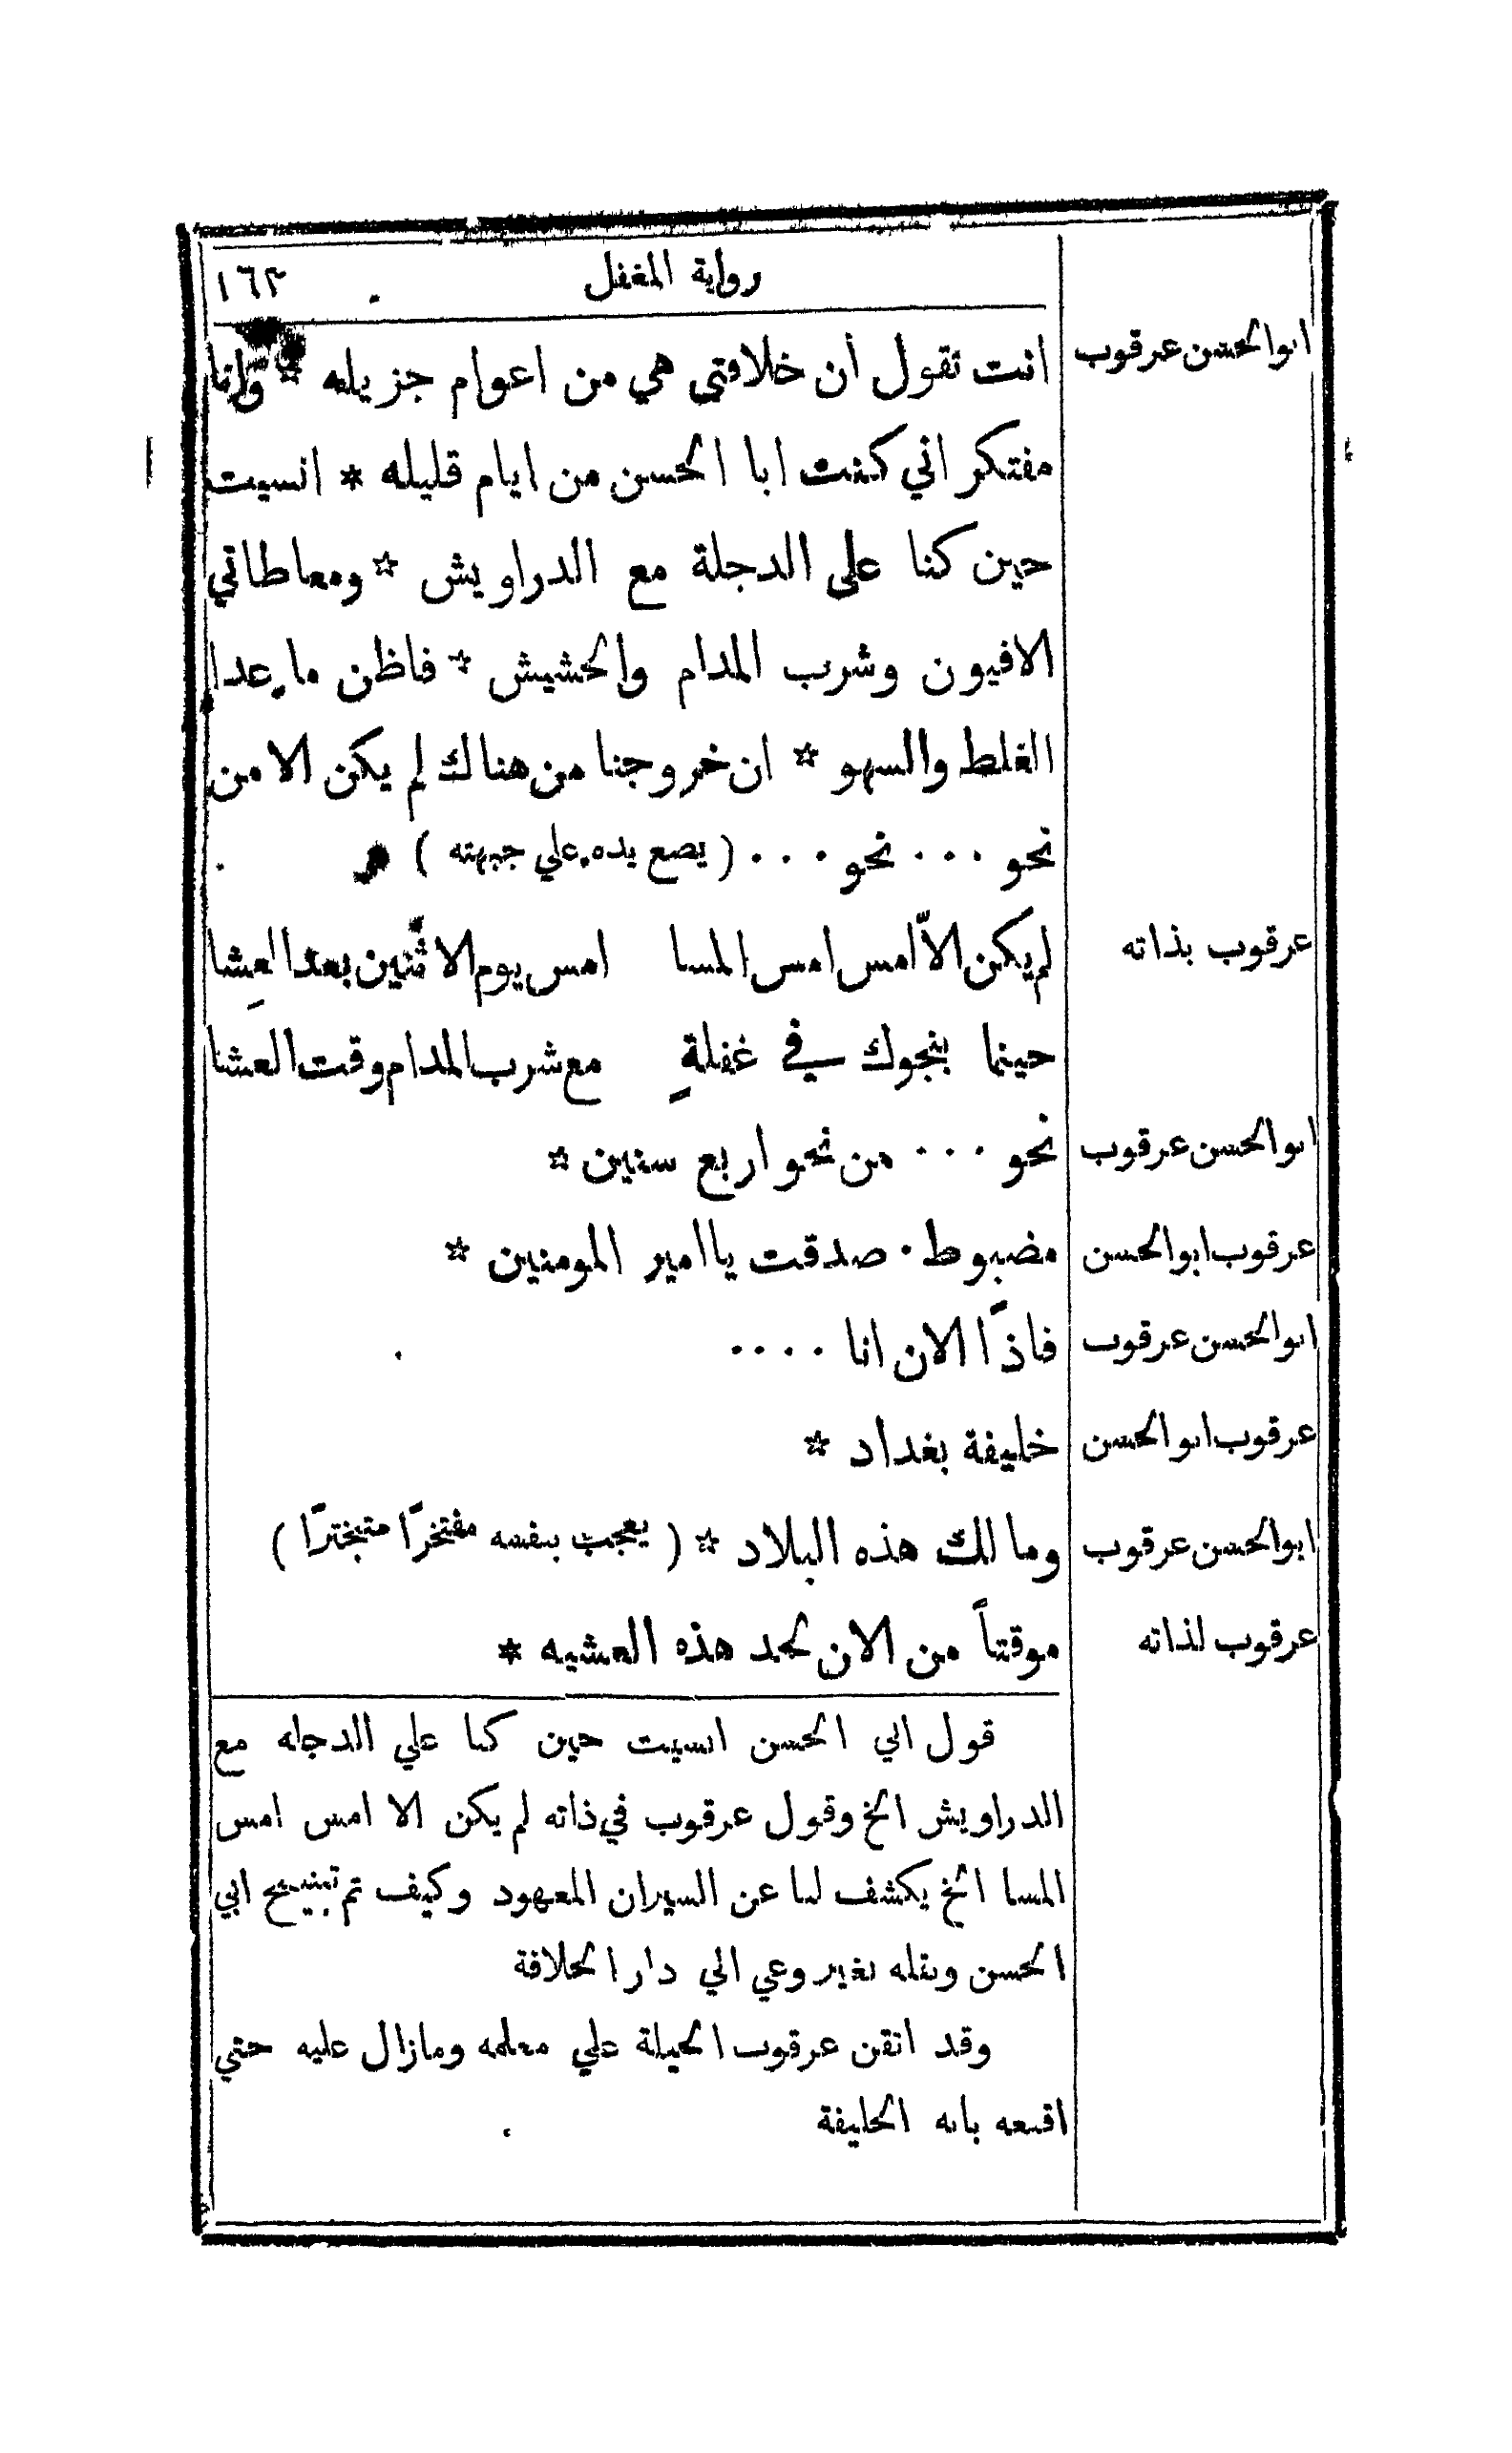 رواية المغفل ١٦٣
ابوالحسن عرقوب انت تقول أن خلافتي هي من اعوام جزيله * وانا
مفتكر اني كنت ابا الحسن من ايام قليله * انسيت
حين كنا على الدجلة مع الدراويش * ومعاطاتي
الافيون وشرب المدام والحشيش * فاظن ما عدا
الغلط والسهو * ان خروجنا من هناك لم يكن الا من
نحو ٠٠٠ نحو ٠٠٠ ( يضع يده علي جبهته )
عرقوب بذاته لم يكن الاّ امس امس المسا امس يوم الاثنين بعد العِشا
حينما بنجوك في غفلةٍ مع شرب المدام وقت العشا
ابوالحسن عرقوب نحو ٠٠٠ من نحو اربع سنين *
عرقوب ابوالحسن مضبوط ٠ صدقت يا امير المومنين *
ابوالحسن عرقوب فاذًا الان انا ٠٠٠٠
عرقوب ابوالحسن خليفة بغداد *
ابوالحسن عرقوب ومالك هذه البلاد * ( يعجب بنفسه مفتخرًا متبخترًا )
عرقوب لذاته موقتاً من الان لحد هذه العشيه *
قول ابي الحسن انسيت حين كنا علي الدجله مع
الدراويش الخ وقول عرقوب في ذاته لم يكن الا امس امس
المسا الخ يكشف لنا عن السيران المعهود وكيف تم تبنيج ابي
الحسن ونقله بغير وعي الي دار الخلافة
وقد اتقن عرقوب الحيلة علي معلمه ومازال عليه حتي
اقنعه بانه الخليفة